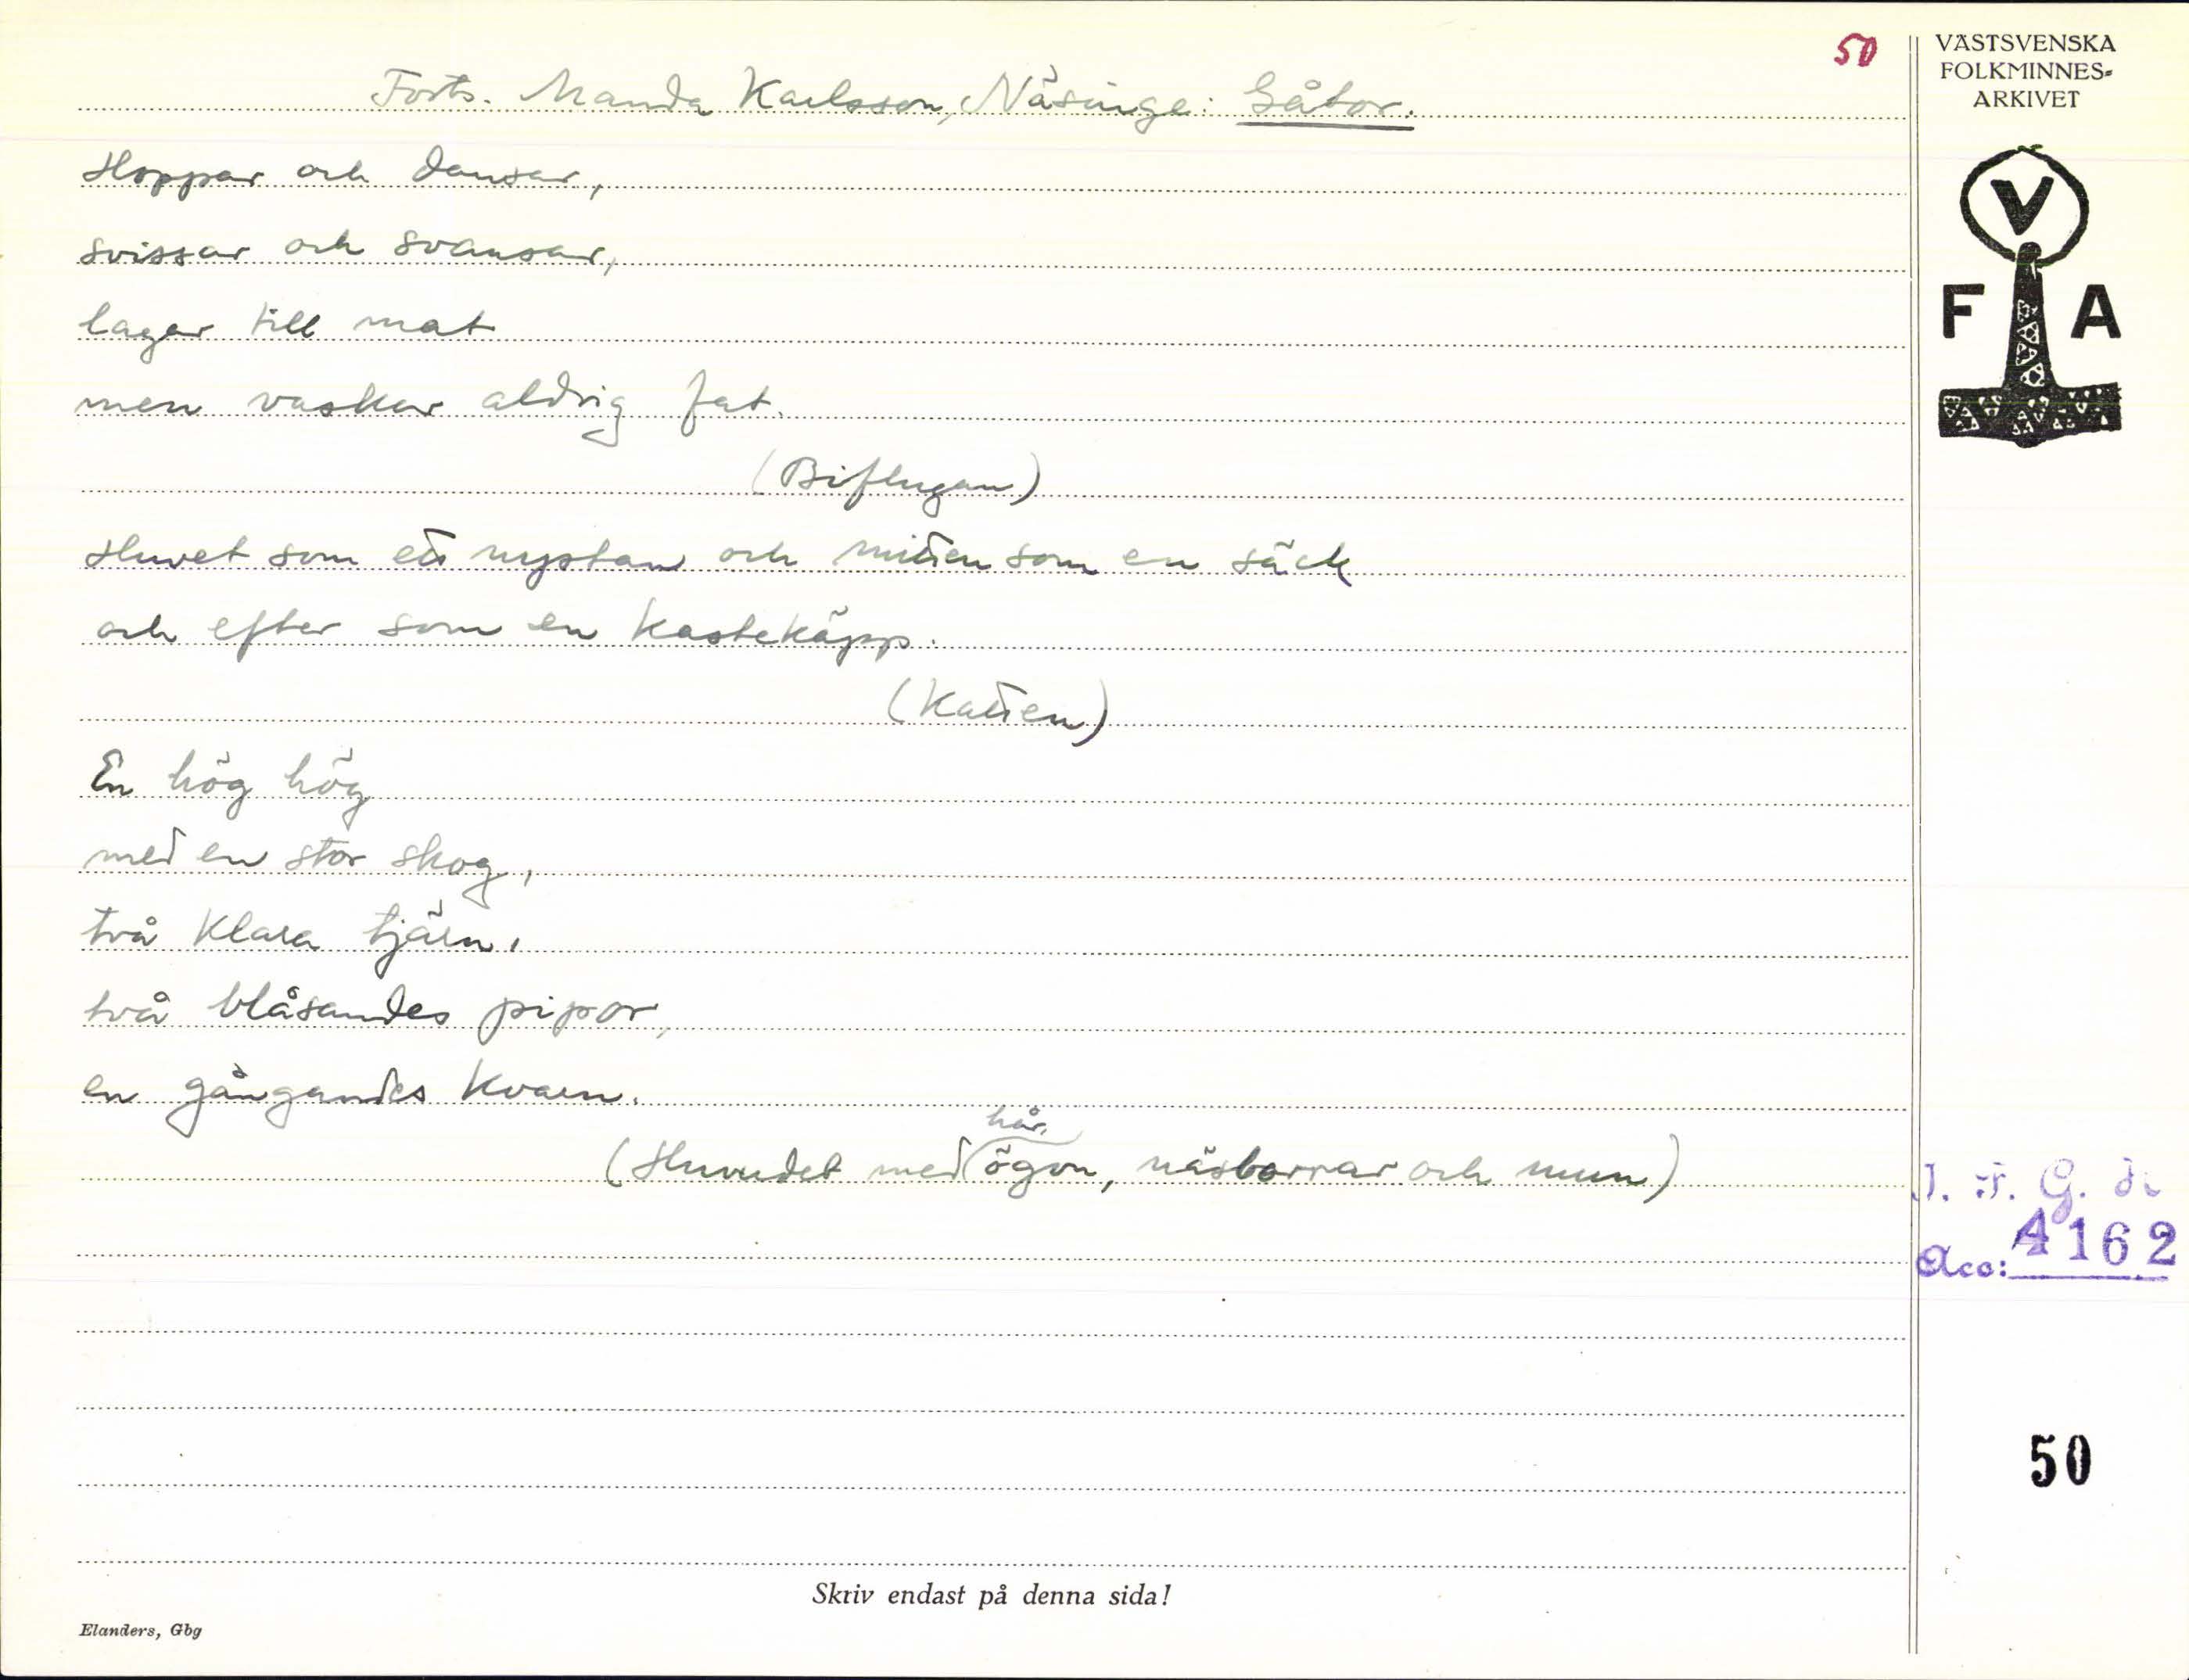 50
Forts. Manda Karlsson, Näsinge: Gåtor.
Hoppar och dansar,
svissar och svansar,
lagar till mat
men vaskar aldrig fat.
(Biflugan)
Huvet som ett nystan och mitten som en säck
och efter som en kastekäpp.
(Katten)
En hög hög
med en stor skog,
två klara tjärn,
två blåsandes pipor,
en gångandes kvarn.
hår,
(Huvudet med ögon, näsborrar och mun)
Skriv endast på denna sida!
Elanders, Gbg
VÄSTSVENSKA
FOLKMINNES-
ARKIVET
V
F A
I. F. G. H.
Acc: 4162
50